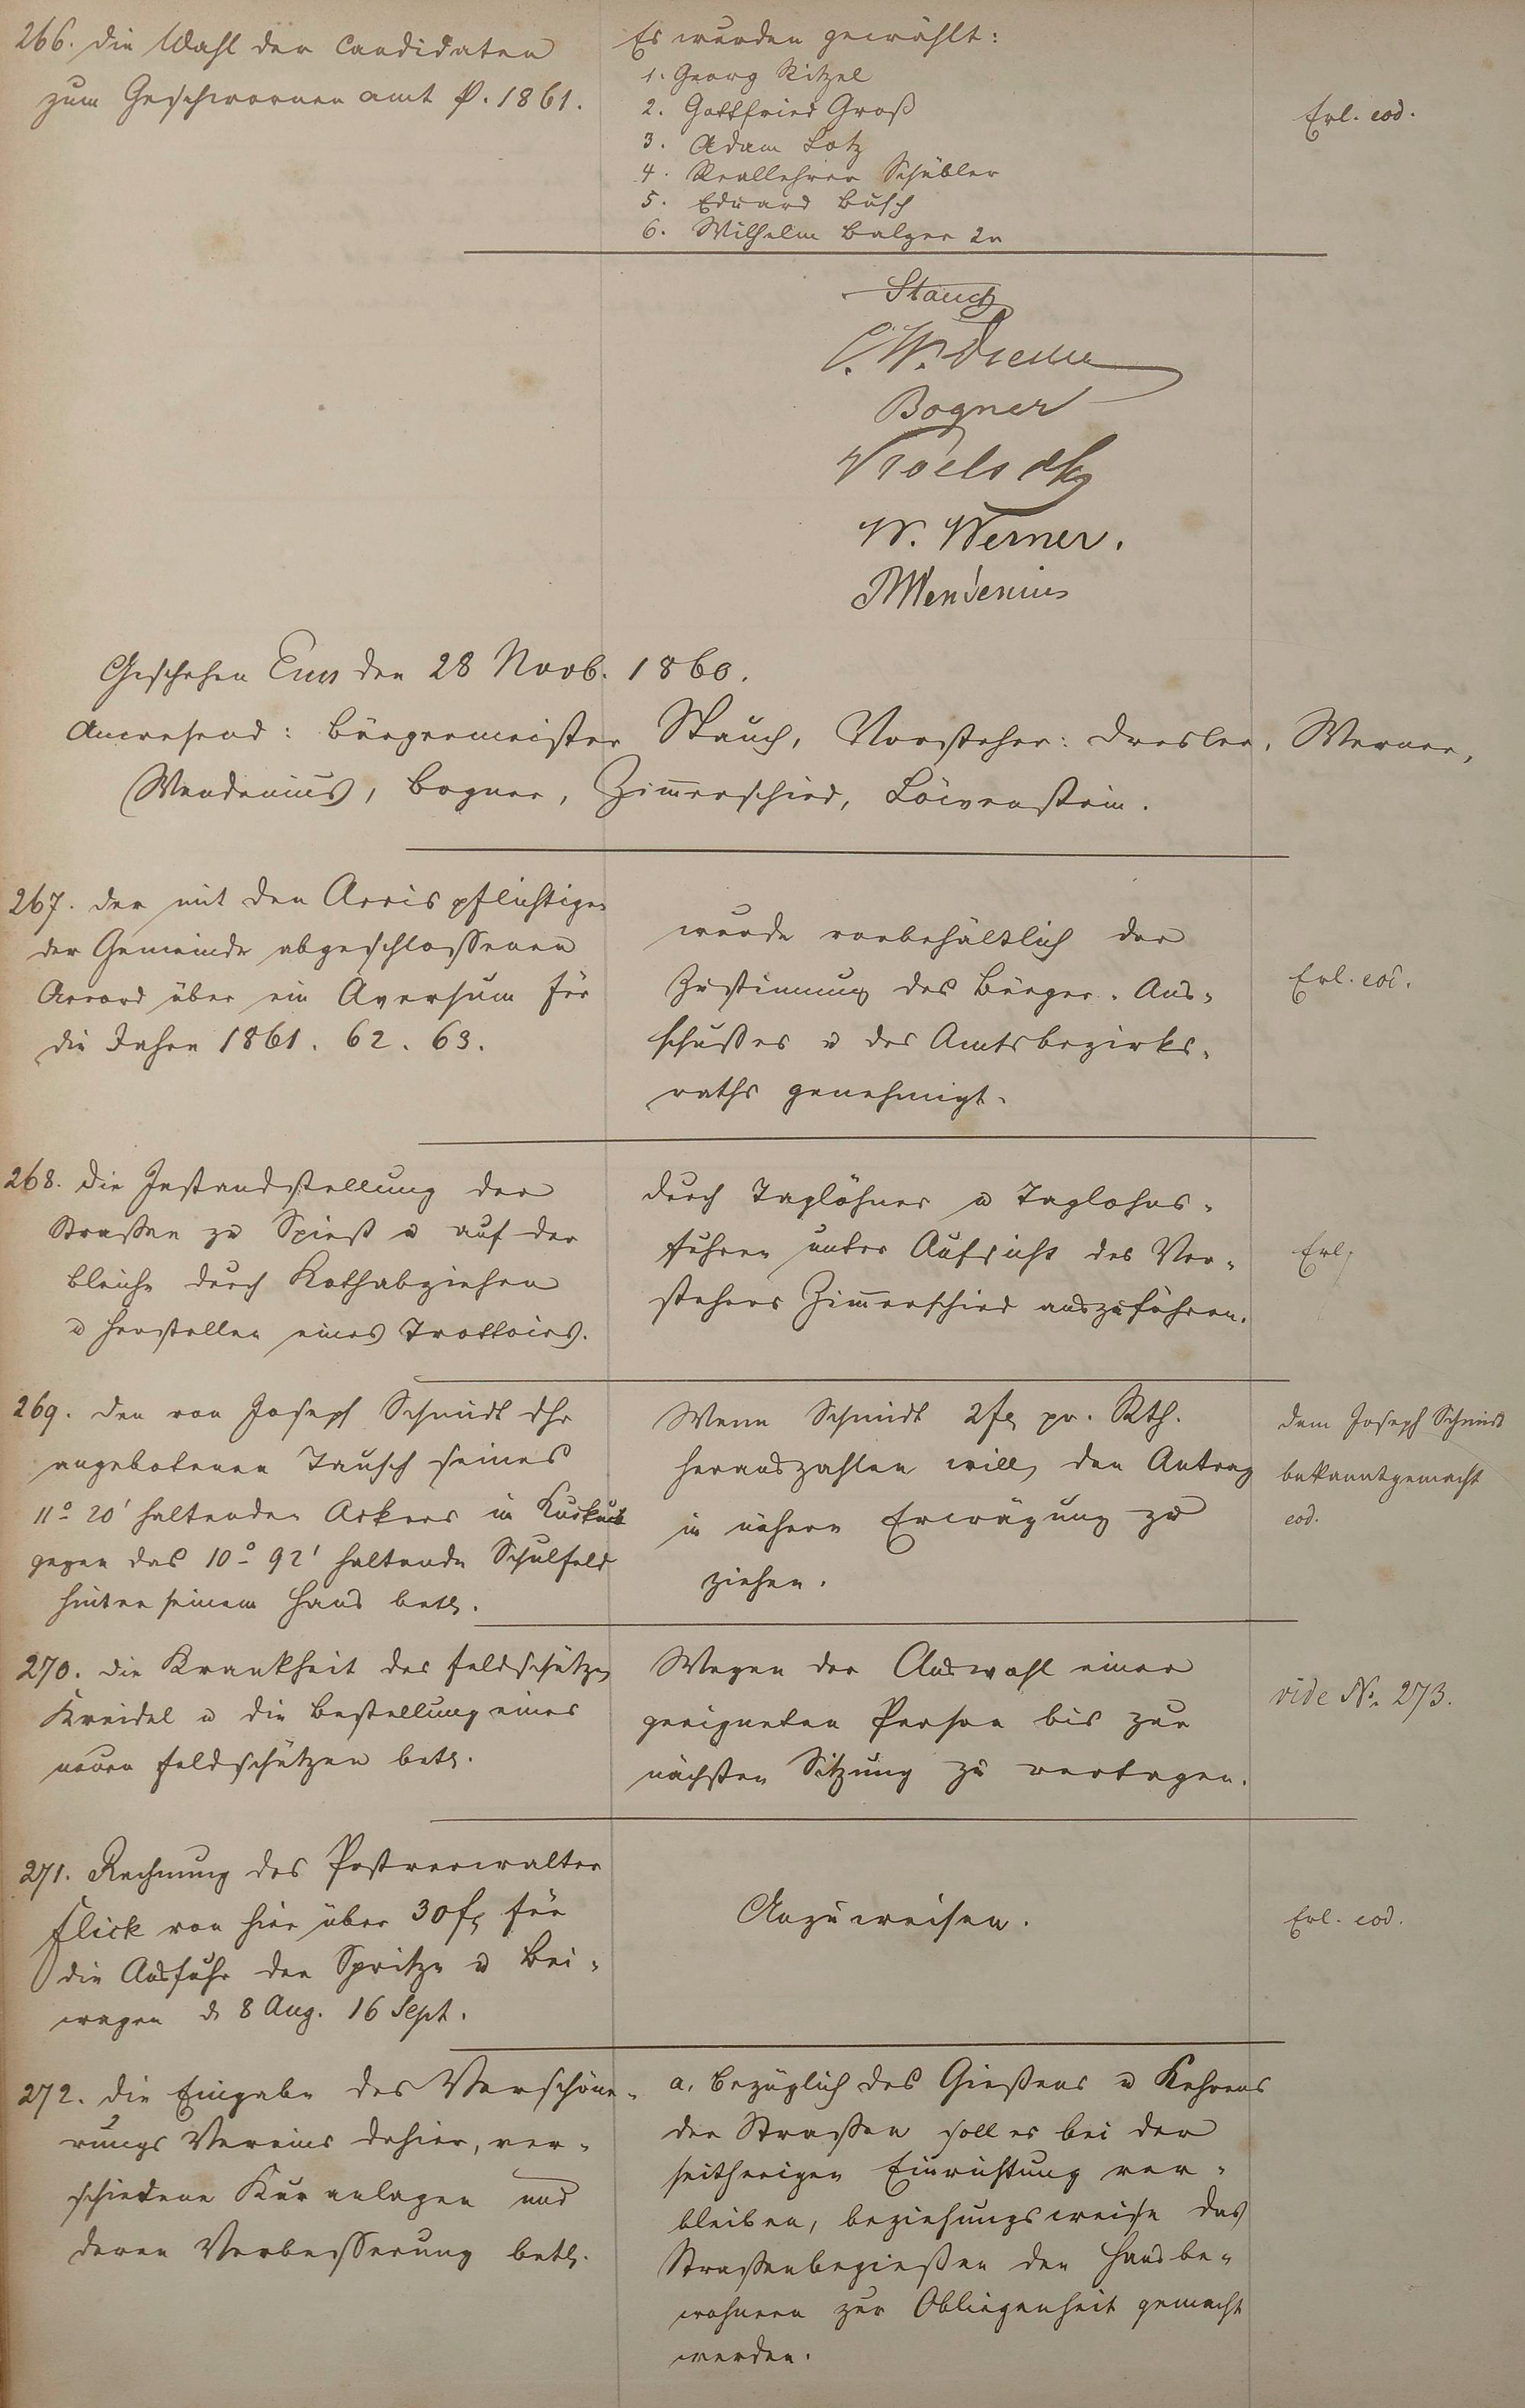 266. die Wahl der Candidaten
zum Geschwornen amt p. 1861.
Es wurden gewählt:
1. Georg Kitzel
2. Gottfried Groß
3. Adam Lotz
4. Reallehrer Schübler
5. Eduard Busch
6. Wilhelm Balzer 2r
Erl. eod.
Stauch
Bogner
W. Werner.
Wendenius
Geschehen Ems den 28 Novb. 1860.
Anwesend: Bürgermeister Stauch, Vorsteher: Dresler, Werner,
Wendenius, Bogner, Zimerschied, Löwenstein.
267. der mit den Accispflichtigen
der Gemeinde abgeschlossenen
Accord über ein Aversum für
die Jahre 1861. 62. 63.
wurde vorbehältlich der
Zustimmung des Bürger-Aus-
schusses u des Amtsbezirks-
raths genehmigt.
Erl. eod.
268. die Instandstellung der
Straßen zu Spieß u auf der
Bleiche durch Kothabziehen
u Herstellen eines Trottoirs.
durch Taglöhner u Taglohns-
fuhren unter Aufsicht des Vor-
stehers Zimerschied auszuführen.
Erl.
269. den von Joseph Schmidt dhr
angebotenen Tausch seines
11° 20' haltenden Ackers in
gegen das 10° 92' haltende Schulfeld
hinter seinem Haus betr.
Wenn Schmidt 2 fl pr. Rth.
herauszahlen will, den Antrag
in nähere Erwägung zu
ziehen.
dem Joseph Schmidt
bekanntgemacht
eod.
270. die Krankheit des Feldschützen
Kreidel u die Bestellung eines
neuen Feldschützen betr.
Wegen der Auswahl einer
geeigneten Person bis zur
nächsten Sitzung zu vertagen.
vide No. 273.
271. Rechnung des Postverwalter
Flick von hier über 30 fl für
die Ausfuhr der Spritze u Bei-
wagen d 8 Aug. 16 Sept.
Anzuweisen.
Erl. eod.
272. die Eingabe des Verschöne-
rungs Vereins dahier, ver-
schiedene Kuranlagen und
deren Verbesserung betr.
a, bezüglich des Gießens u Kehrens
der Straßen soll es bei der
seitherigen Einrichtung ver-
bleiben, beziehungsweise das
Straßenbegießen den Hausbe-
wohnern zur Obliegenheit gemacht
werden.